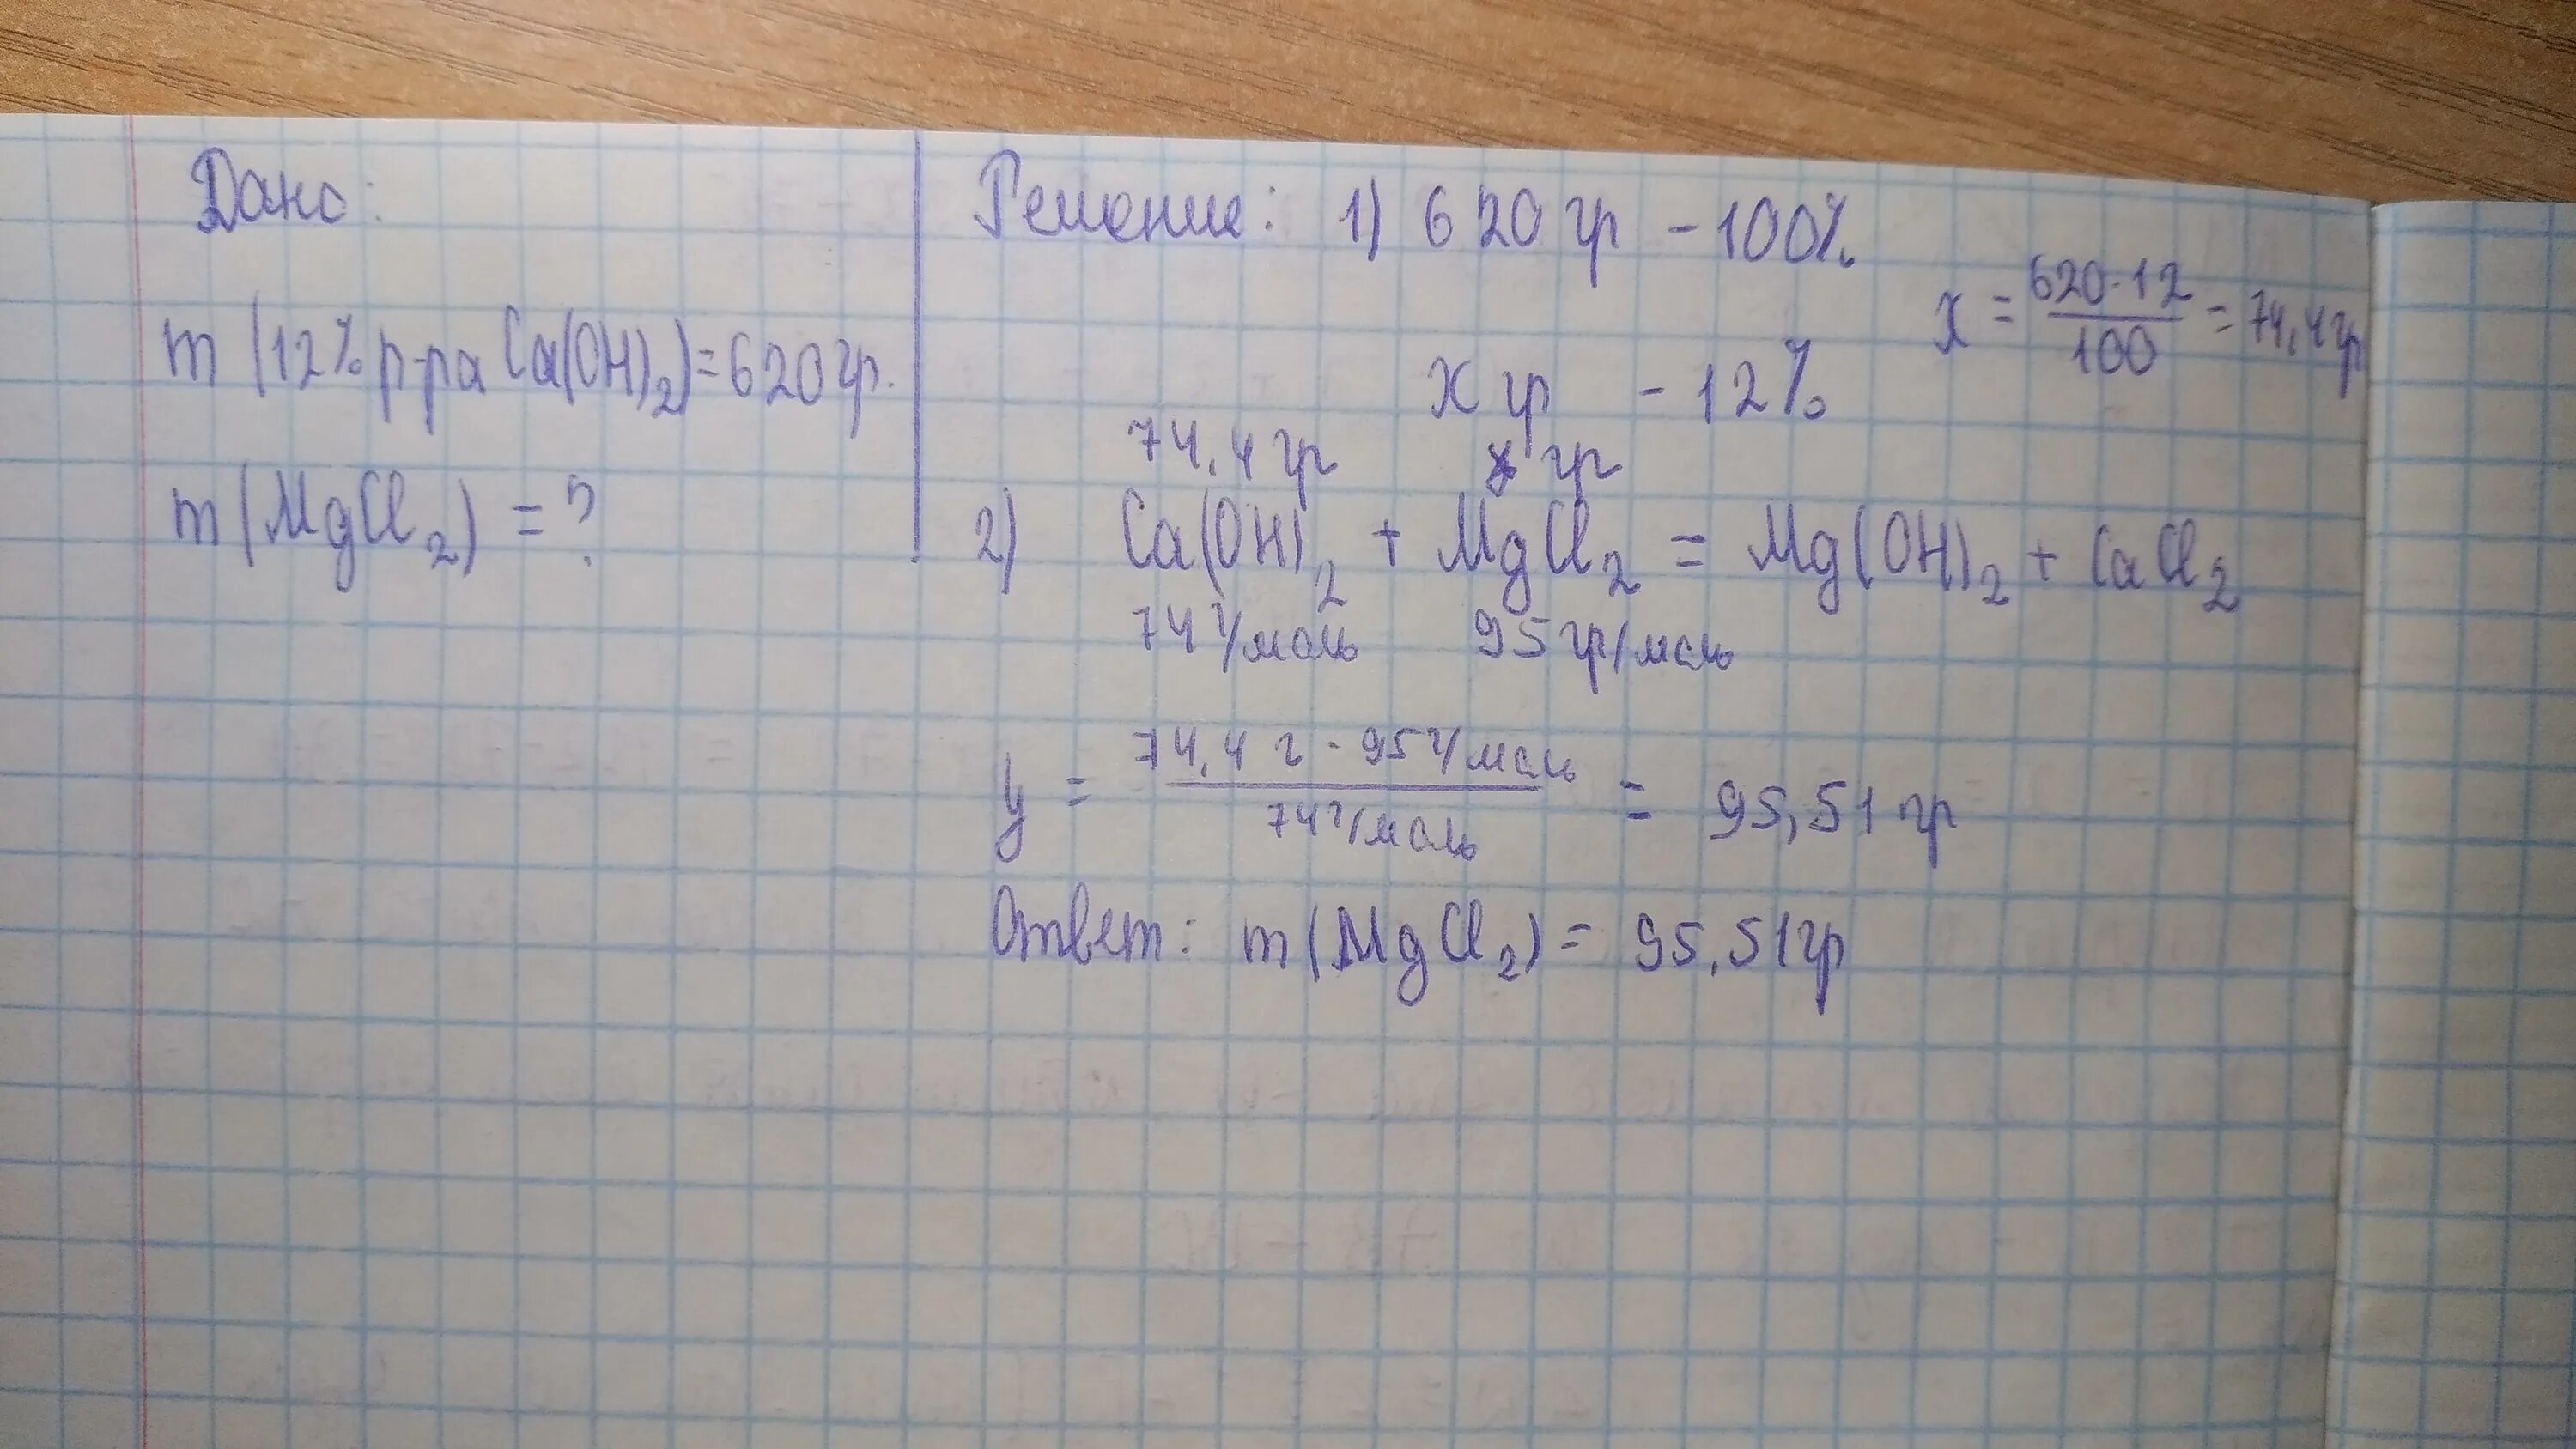 Дано:
m (12% р-ра Ca(OH)₂) = 620 гр.
m (MgCl₂) = ?
Решение: 1) 620 гр - 100%
x гр - 12%
x = 620·12 / 100 = 74,4 гр
74,4 гр гр
2) Ca(OH)₂ + MgCl₂ = Mg(OH)₂ + CaCl₂
74 г/моль 95 гр/моль
y = 74,4 г · 95 г/моль / 74 г/моль = 95,51 гр
Ответ: m (MgCl₂) = 95,51 гр